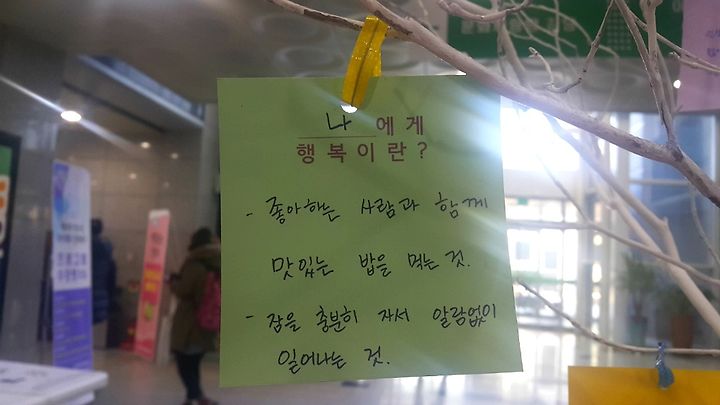 나 에게
행복이란?
- 좋아하는 사람과 함께
맛있는 밥을 먹는 것.
- 잠을 충분히 자서 알람없이
일어나는 것.